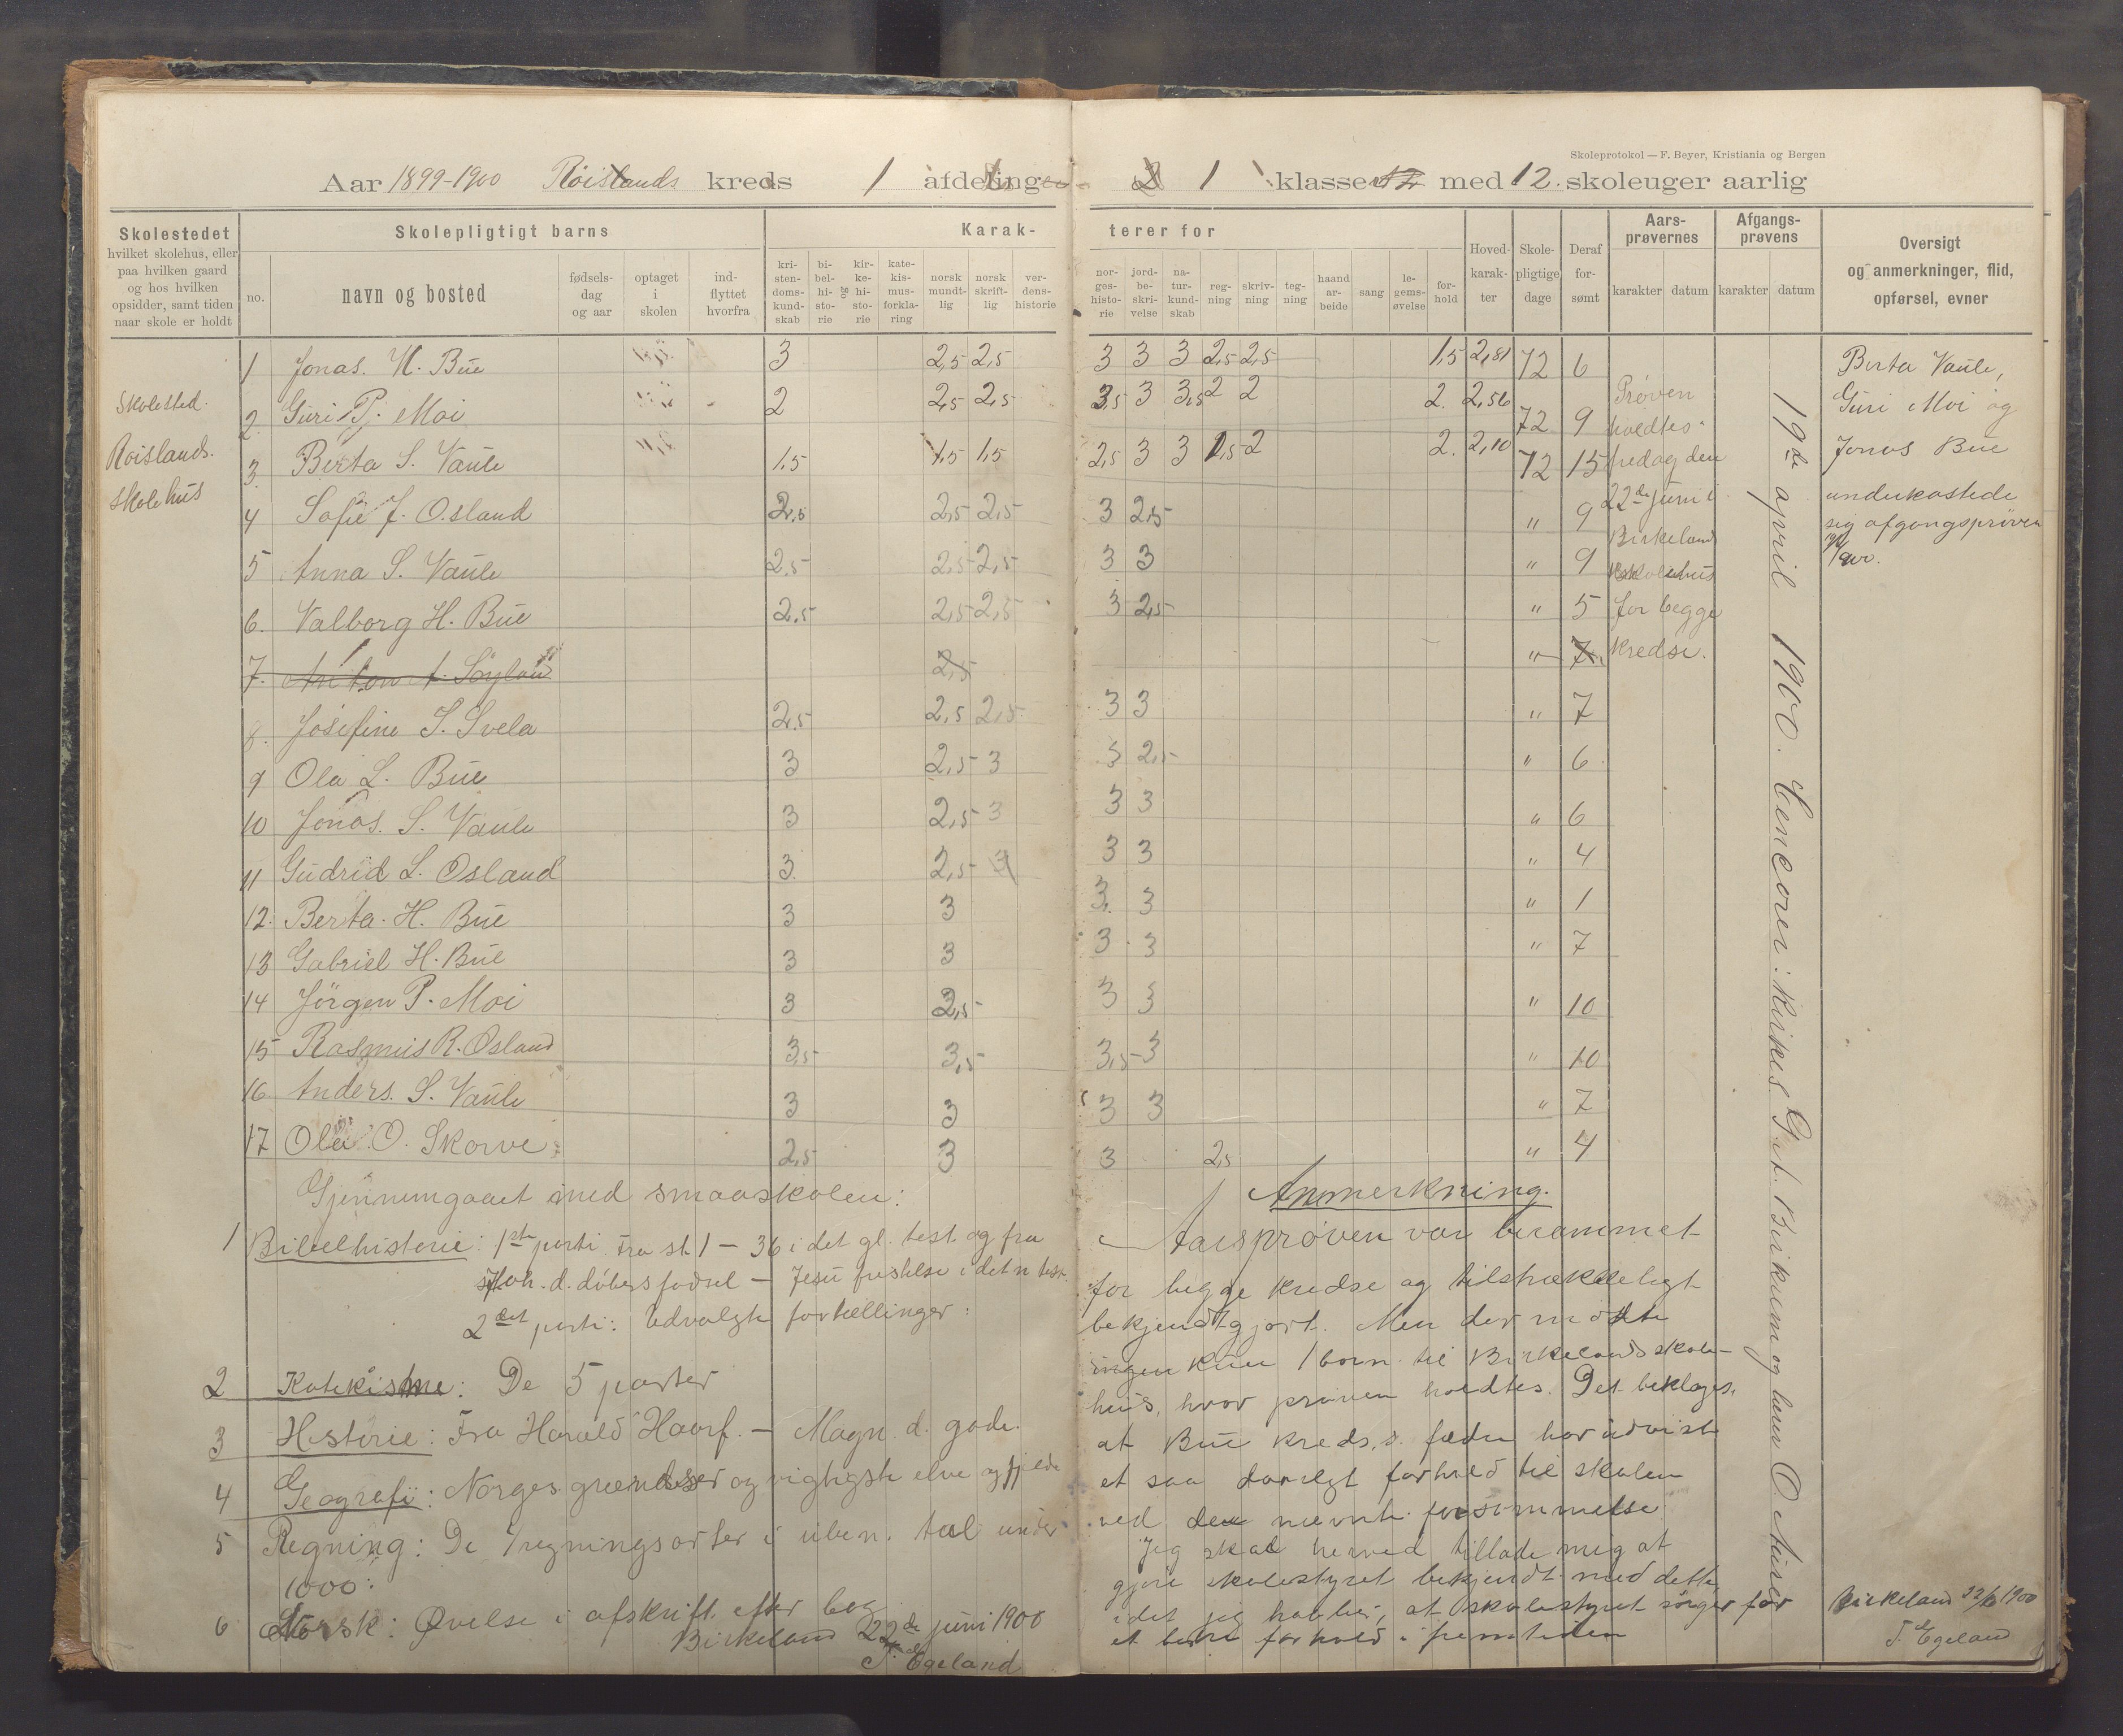 Skoleprotokol — F. Beyer, Kristiania og Bergen
Aar 1899-1900 Röislands kreds 1 afdeling 1 klasse med 12. skoleuger aarlig
Skolestedet
hvilket skolehus, eller
paa hvilken gaard
og hos hvilken
opsidder, samt tiden
naar skole er holdt
Skolepligtigt barns
no.
navn og bosted
fødsels-
dag
og aar
optaget
i
skolen
ind-
flyttet
hvorfra
Karak-
kri-
sten-
doms-
kund-
skab
bi-
bel-
hi-
sto-
rie
og
kir-
ke-
hi-
sto-
rie
kate-
kis-
mus-
forkla-
ring
norsk
mundt-
lig
norsk
skrift-
lig
ver-
dens-
historie
terer for
nor-
ges-
histo-
rie
jord-
be-
skri-
velse
na-
tur-
kund-
skab
reg-
ning
skriv-
ning
teg-
ning
haand
ar-
beide
sang
le-
gems-
øvelse
for-
hold
Hoved-
karak-
ter
Skole-
pligtige
dage
Deraf
for-
sømt
Aars-
prøvernes
karakter datum
Afgangs-
prøvens
karakter datum
Oversigt
og anmerkninger, flid,
opførsel, evner
Skolested.
Roislands.
skolehus
1 Jonas. H. Bue 3 2,5 2,5 3 3 3 2,5 2,5 1,5 2,81 72 6
2. Guri P. Moi 2 2,5 2,5 3,5 3 3,5 2 2 2. 2,56 72 9
3. Berta S. Vaule 1,5 1,5 1,5 2,5 3 3 1,5 2 2. 2,10 72 15
4 Sofie J. Osland 2,5 2,5 2,5 3 2,5 " 9
5 Anna S. Vaule 2,5 2,5 2,5 3 3 " 9
6. Valborg H. Bue 2,5 2,5 2,5 3 2,5 " 5
7. Anton A. Söyland 2,5 " 7
8. Josefine S. Svela 2,5 2,5 2,5 3 3 " 7
9 Ola L. Bue 3 2,5 3 3 2,5 " 6
10 Jonas. S. Vaule 3 2,5 3 3 3 " 6
11 Gudrid L. Osland 3. 2,5 3 3 3 " 4
12. Berta. H. Bue 3 3 3. 3 " 1
13 Gabriel H. Bue 3 3 3 3 " 7
14 Jörgen P. Moi 3 2,5 3 3 " 10
15 Rasmus R. Osland 3,5 3,5 3,5 3 " 10
16 Anders. S. Vaule 3 3 3 3 " 7
17 Ola O. Skorve 2,5 3 3 2,5 " 4
Prøven
holdtes
fredag den
22de juni i
Birkeland
skolehus
for begge
kredse.
19de april 1900. Cencorer: Kirkes. G. t. Birkrem og lærer O. Aurer
Berta Vaule,
Guri Moi og
Jonas Bue
underkastede
sig afgangsprøven
19/4
900.
Gjennemgaaet med smaaskolen:
1 Bibelhistorie: 1ste parti fra st. 1 - 36 i det gl. test. og fra
Joh. d. döbers födsel - Jesu fristelse i det n. test.
2det parti: Udvalgte fortællinger:
2 Katekisme: De 5 parter
3 Historie: Fra Harald Haarf. - Magn. d. gode.
4 Geografi: Norges grændser og vigtigste elve og fjelde
5 Regning: De 4 regningsarter i uben. tal under
1000:
6 Norsk: Øvelse i afskrift efter bog
Birkeland 22de juni 1900
T. Egeland
Anmerkning.
Aarsprøven var berammet
for begge kredse og tilstrækkeligt
bekjendtgjort. Men der mødte
ingen kun 1 barn til Birkelands skole-
hus, hvor prøven holdtes. Det beklages,
at Bue kreds,s. fædre har udvist
et saa daarligt forhold til skolen
ved den nævnte forsømmelse
Jeg skal herved tillade mig at
gjøre skolestyret bekjendt med dette,
idet jeg haaber, at skolestyret sörger for
et bedre forhold i fremtiden
Birkeland 22/6 1900
T. Egeland